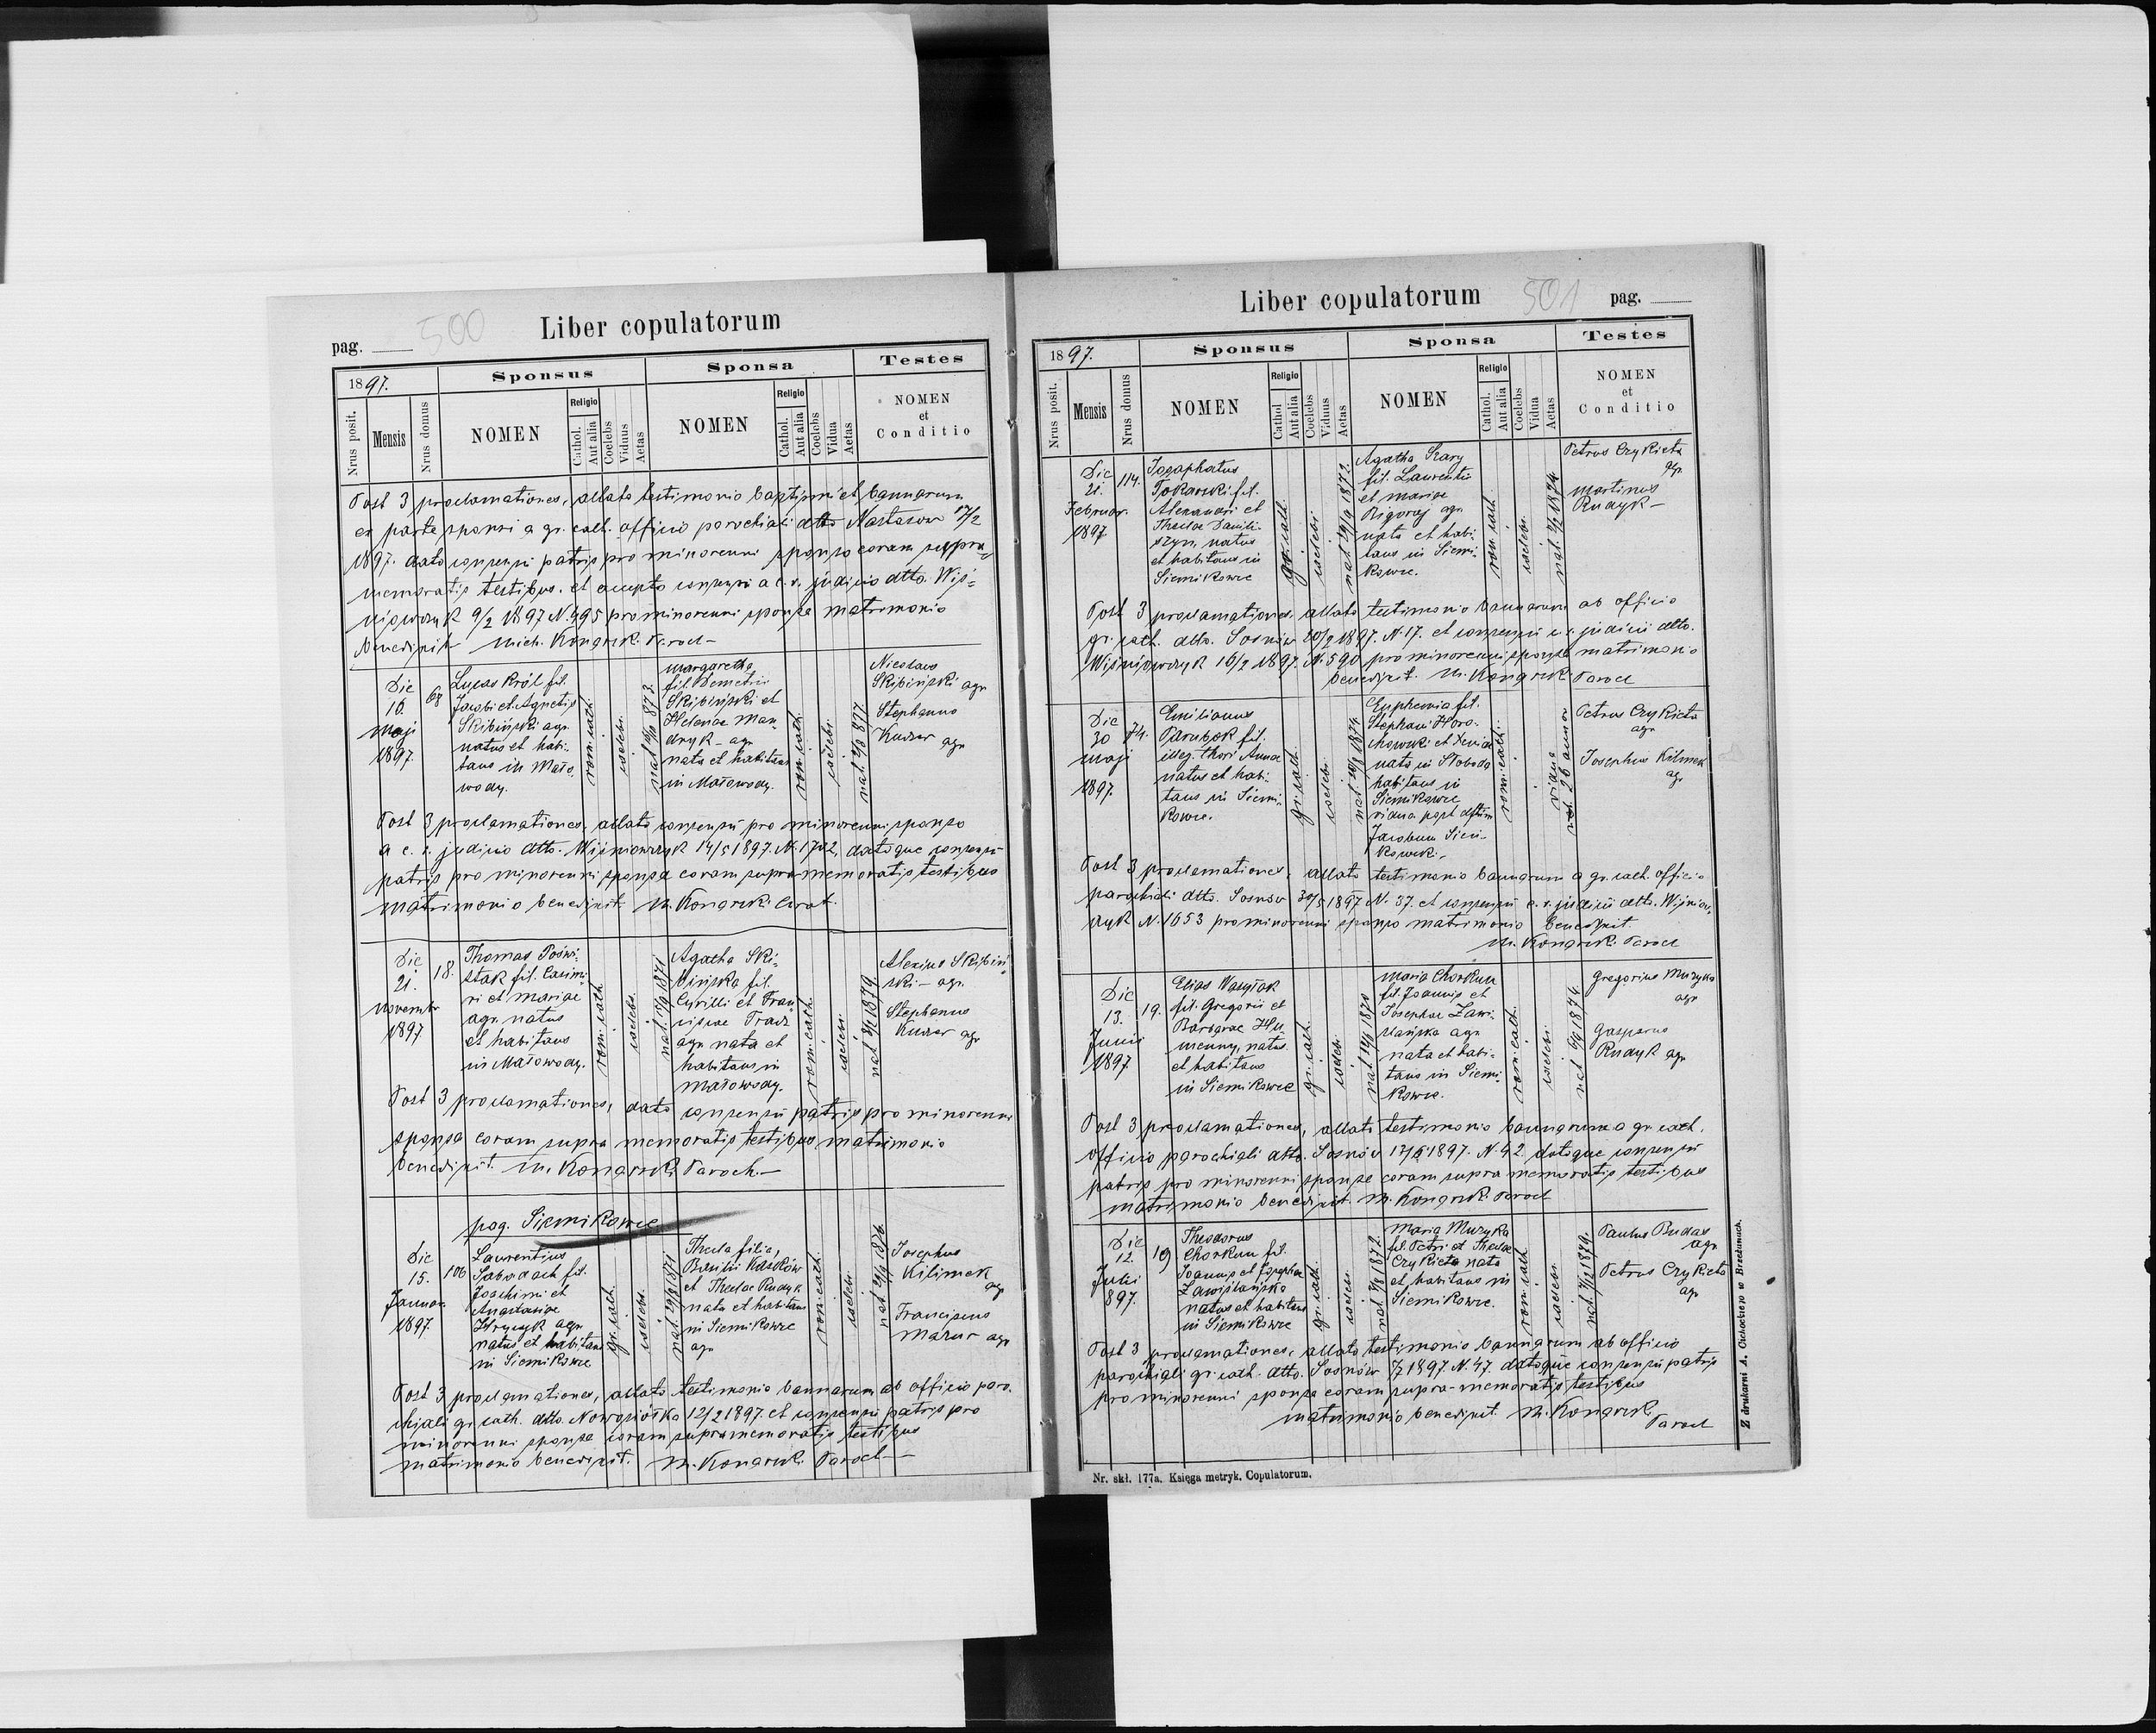 500
Liber copulatorum
pag.
1897.
Sponsus
Sponsa
Testes
Nrus posit.
Mensis
Nrus domus
NOMEN
Religio
Cathol.
Aut alia
Coelebs
Viduus
Aetas
NOMEN
Religio
Cathol.
Aut alia
Coelebs
Vidua
Aetas
NOMEN
et
Conditio
Post 3 proclamationes, allato testimonio baptismi et bannorum
ex parte sponsi a gr. cath. officio parochiali dtto Nastasow 17/2
1897. dato consensu patris pro minorenni sponso coram supra
memoratis testibus, et accepto consensu a c. r. judicio dtto. Wiś-
niowczyk 9/2 1897 N. 495 pro minorenni sponsa matrimonio
benedixit Mich. Paroch
Die
16.
Maji
1897.
68
Lucas Król fil.
Jacobi et Agnetis
Skibiński agr.
natus et habi-
tans in Mało-
wody.
rom. cath.
coelebs.
Margaretha
fil. Demetrii
Skibiński et
Helenae Man
dryk agr.
nata et habitans
in Małowody.
rom. cath.
coelebs.
Nicolaus
Skibiński agr
Stephanus
Kuzar agr
Post 3 proclamationes, allato consensu pro minorenni sponso
a c. r. judicio dtto. Wiśniowczyk 14/5 1897. N. 1702, datoque consensu
patris pro minorenni sponsa coram supramemoratis testibus
matrimonio benedixit M.
Die
21.
Novembr
1897.
18.
Thomas
fil. Casimi-
ri et Mariae
agr. natus
et habitans
in Małowody.
rom. cath.
coelebs.
Agatha Ski-
bińska fil.
Cyrilli et Fran
ciscae
agr. nata et
habitans in
Małowody.
rom. cath.
coelebs.
Alexius Skibiń
ski agr.
Stephanus
Kuzar agr
Post 3 proclamationes, dato consensu patris pro minorenni
sponsa coram supra memoratis testibus matrimonio
benedixit. M. Paroch.
pag. Siemikowce
Die
15.
Januar.
1897.
106
Laurentius
fil.
Joachimi et
Anastasiae
Hryczyk agr.
natus et habitans
in Siemikowce
gr. cath.
coelebs.
Thecla filia,
Basilii
et Theclae Rudyk
nata et habitans
in Siemikowce
agr
rom. cath.
coelebs.
Josephus
Kilimek
agr
Franciscus
Mazur agr
Post 3 proclamationes, allato testimonio bannorum ab officio paro-
chiali gr. cath. dtto. Nowosiółka 12/2 1897. et consensu patris pro
minorenni sponsa coram supramemoratis testibus
matrimonio benedixit. M. Paroch
501
Liber copulatorum
pag.
1897.
Sponsus
Sponsa
Testes
Nrus posit.
Mensis
Nrus domus
NOMEN
Religio
Cathol
Aut alia
Coelebs
Viduus
Aetas
NOMEN
Religio
Cathol.
Aut alia
Coelebs
Vidua
Aetas
NOMEN
et
Conditio
Die
21.
Februar.
1897
114.
Josaphatus
Tokarski fil.
Alexandri et
Theclae Danili-
szyn, natus
et habitans in
Siemikowce
gr. cath.
coelebs.
Agatha Szary
fil. Laurentii
et Mariae
Rigoraj agr.
nata et habi-
tans in Siemi-
kowce.
rom. cath.
coelebs.
Petrus Czykieta
agr.
Martinus
Rudyk
Post 3 proclamationes, allato testimonio bannorum ab officio
gr. cath. dtto. Sosnów 20/2 1897. N. 17. et consensu c. r. judicii dtto.
Wiśniowczyk 16/2 1897. N. 590 pro minorenni sponsa matrimonio
benedixit. M. Paroch
Die
30
Maji
1897.
74.
Emilianus
Parubok fil.
illeg. thori Annae
natus et habi-
tans in Siemi-
kowce.
gr. cath.
coelebs.
Euphemia fil.
Stephani Horo-
chowski et Xenia
nata in Słoboda
habitans in
Siemikowce
vidua post
Jacobum Siemi-
kowski.
rom. cath.
vidua
nat. 26 annor
Petrus Czykieta
agr
Josephus Kilimek
agr
Post 3 proclamationes, allato testimonio bannorum a gr. cath. officio
parochiali dtto. Sosnów 30/5 1897 N. 37. et consensu c. r. judicii dtto. Wiśniow-
czyk N. 1653 pro minorenni sponso matrimonio benedixit.
M. Paroch
Die
13.
Junii
1897.
19.
Elias Wasylak
fil. Gregorii et
Barbarae Hu-
menny, natus
et habitans
in Siemikowce
gr. cath.
coelebs.
Maria Chorkun
fil. Joannis et
Josephae Zawi-
ślańska agr
nata et habi-
tans in Siemi-
kowce.
rom. cath.
coelebs.
Gregorius Muzyka
agr
Gasparus
Rudyk agr
Post 3 proclamationes, allato testimonio bannorum a gr. cath.
officio parochiali dtto. Sosnów 13/6 1897. N. 42. datoque consensu
patris pro minorenni sponsa coram supra memoratis testibus
matrimonio benedixit. M. Paroch
Die
12.
Julii
897.
19
Theodorus
Chorkun fil.
Joannis et Josephae
Zawiślańska
natus et habitans
in Siemikowce
gr. cath.
coelebs.
Maria Muzyka
fil. Petri et Theclae
Czykieta nata
et habitans in
Siemikowce.
rom. cath.
coelebs.
Paulus
agr.
Petrus Czykieta
agr
Post 3 proclamationes, allato testimonio bannorum ab officio
parochiali gr. cath. dtto. Sosnów 1897. N. 47. datoque consensu patris
pro minorenni sponsa coram supra-memoratis testibus
matrimonio benedixit. M.
Paroch
Nr. skł. 177a. Księga metryk. Copulatorum.
Z drukarni A. Cichockiego w Brzeżanach.